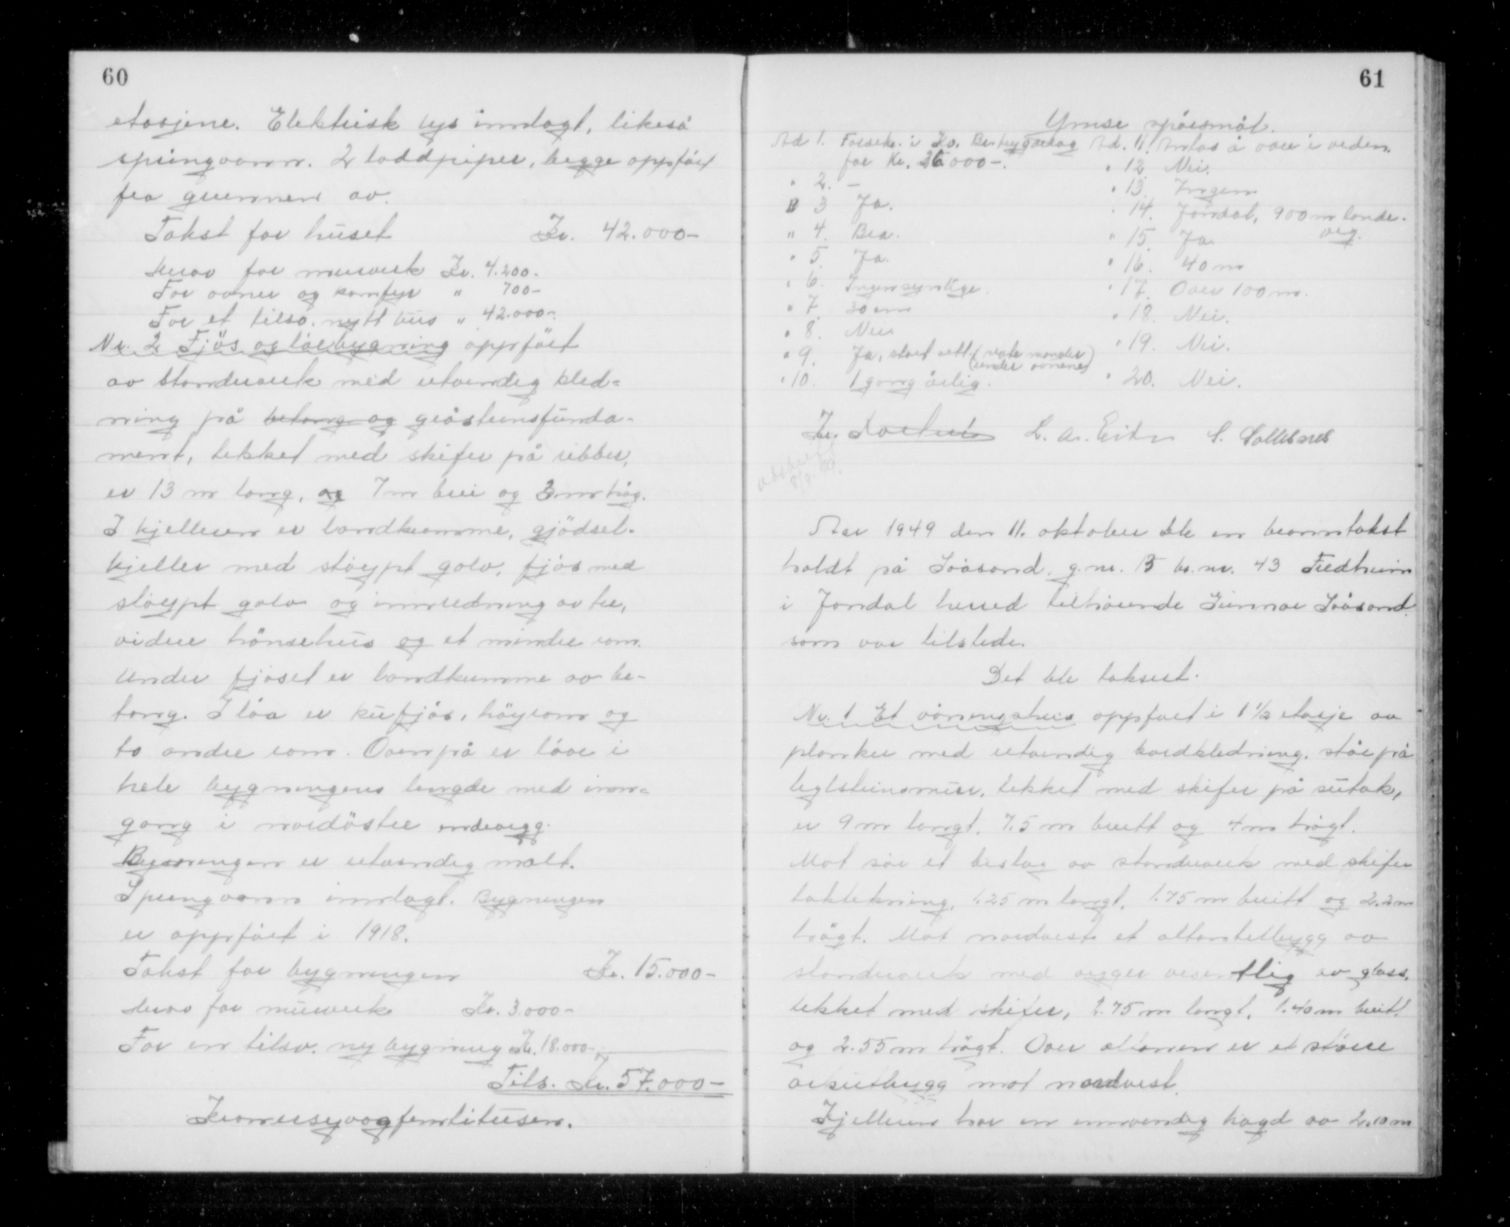 60
etasjene. Elektrisk lys innlagt, likeså
springvann. 2 loddpiper, begge oppført
fra grunnen av.
Takst for huset Kr. 42.000-
Herav for murverk Kr. 4.200-
For ovner og komfyr " 700-
For et tilsv. nytt hus " 42.000-
Nr. 2 Fjös og löebygning oppfört
av standverk med utvendig kled-
ning på betong og gråsteinsfunda-
ment, tekket med skifer på ribber,
er 13 m lang, og 7 m brei og 3 m høg.
I kjelleren er landkumme, gjödsel-
kjeller med støypt golv, fjös med
støypt golv og innredning av tre,
videre hönsehus og et mindre rom.
Under fjøset er landkumme av be-
tong. I löa er kufjös, höyrom og
to andre rom. Ovenpå er löe i
hele bygningens lengde med inn-
gang i nordöstre endevegg.
Bygningen er utvendig malt.
Springvann innlagt. Bygningen
er oppført i 1918.
Takst for bygningen Kr. 15.000-
Herav for murverk Kr. 3.000-
For en tilsv. ny bygning Kr. 18.000-
Tils. Kr. 57.000-
Kroner syvogfemtitusen.
61
Ymse spörsmål.
Ad 1. Forsikr. i Ko. Bu-bygdelag Ad. 11. Antas å være i orden.
for Kr. 26000-. " 12 Nei.
" 2. - " 13. Ingen
" 3 Ja. " 14. Jondal, 900 m lande-
" 4. Bra. " 15. Ja veg.
" 5. Ja. " 16. 40 m
" 6. Ingen synlige. " 17. Over 100 m.
" 7. 30 cm " 18. Nei.
" 8. Nei " 19. Nei.
" 9. Ja, stort sett (under ovnene)
" 10. 1 gang årlig. " 20. Nei.
L. A. Eide S. Sollesnes
Aar 1949 den 11. oktober ble en branntakst
holdt på Svåsand g.nr. 15 br.nr. 43 Fredheim
i Jondal herred tilhörende Gunnar Svåsand
som var tilstede.
Det ble taksert.
Nr. 1 Et våningshus oppfört i 1 1/2 etasje av
planker med utvendig bordkledning, står på
teglsteinsmur, tekket med skifer på sutak,
er 9 m langt, 7.5 m breitt og 4 m högt.
Mot sör et bislag av standverk med skifer
taktekning, 1.25 m langt, 1.75 m breitt og 2.2 m
högt. Mot nordvest et altantilbygg av
standverk med vegger vesentlig av glass,
tekket med skifer, 2.75 m langt, 1.40 m breitt
og 2.55 m högt. Over altanen er et större
arkutbygg mot nordvest.
Kjelleren har en innvendig högd av 2.10 m